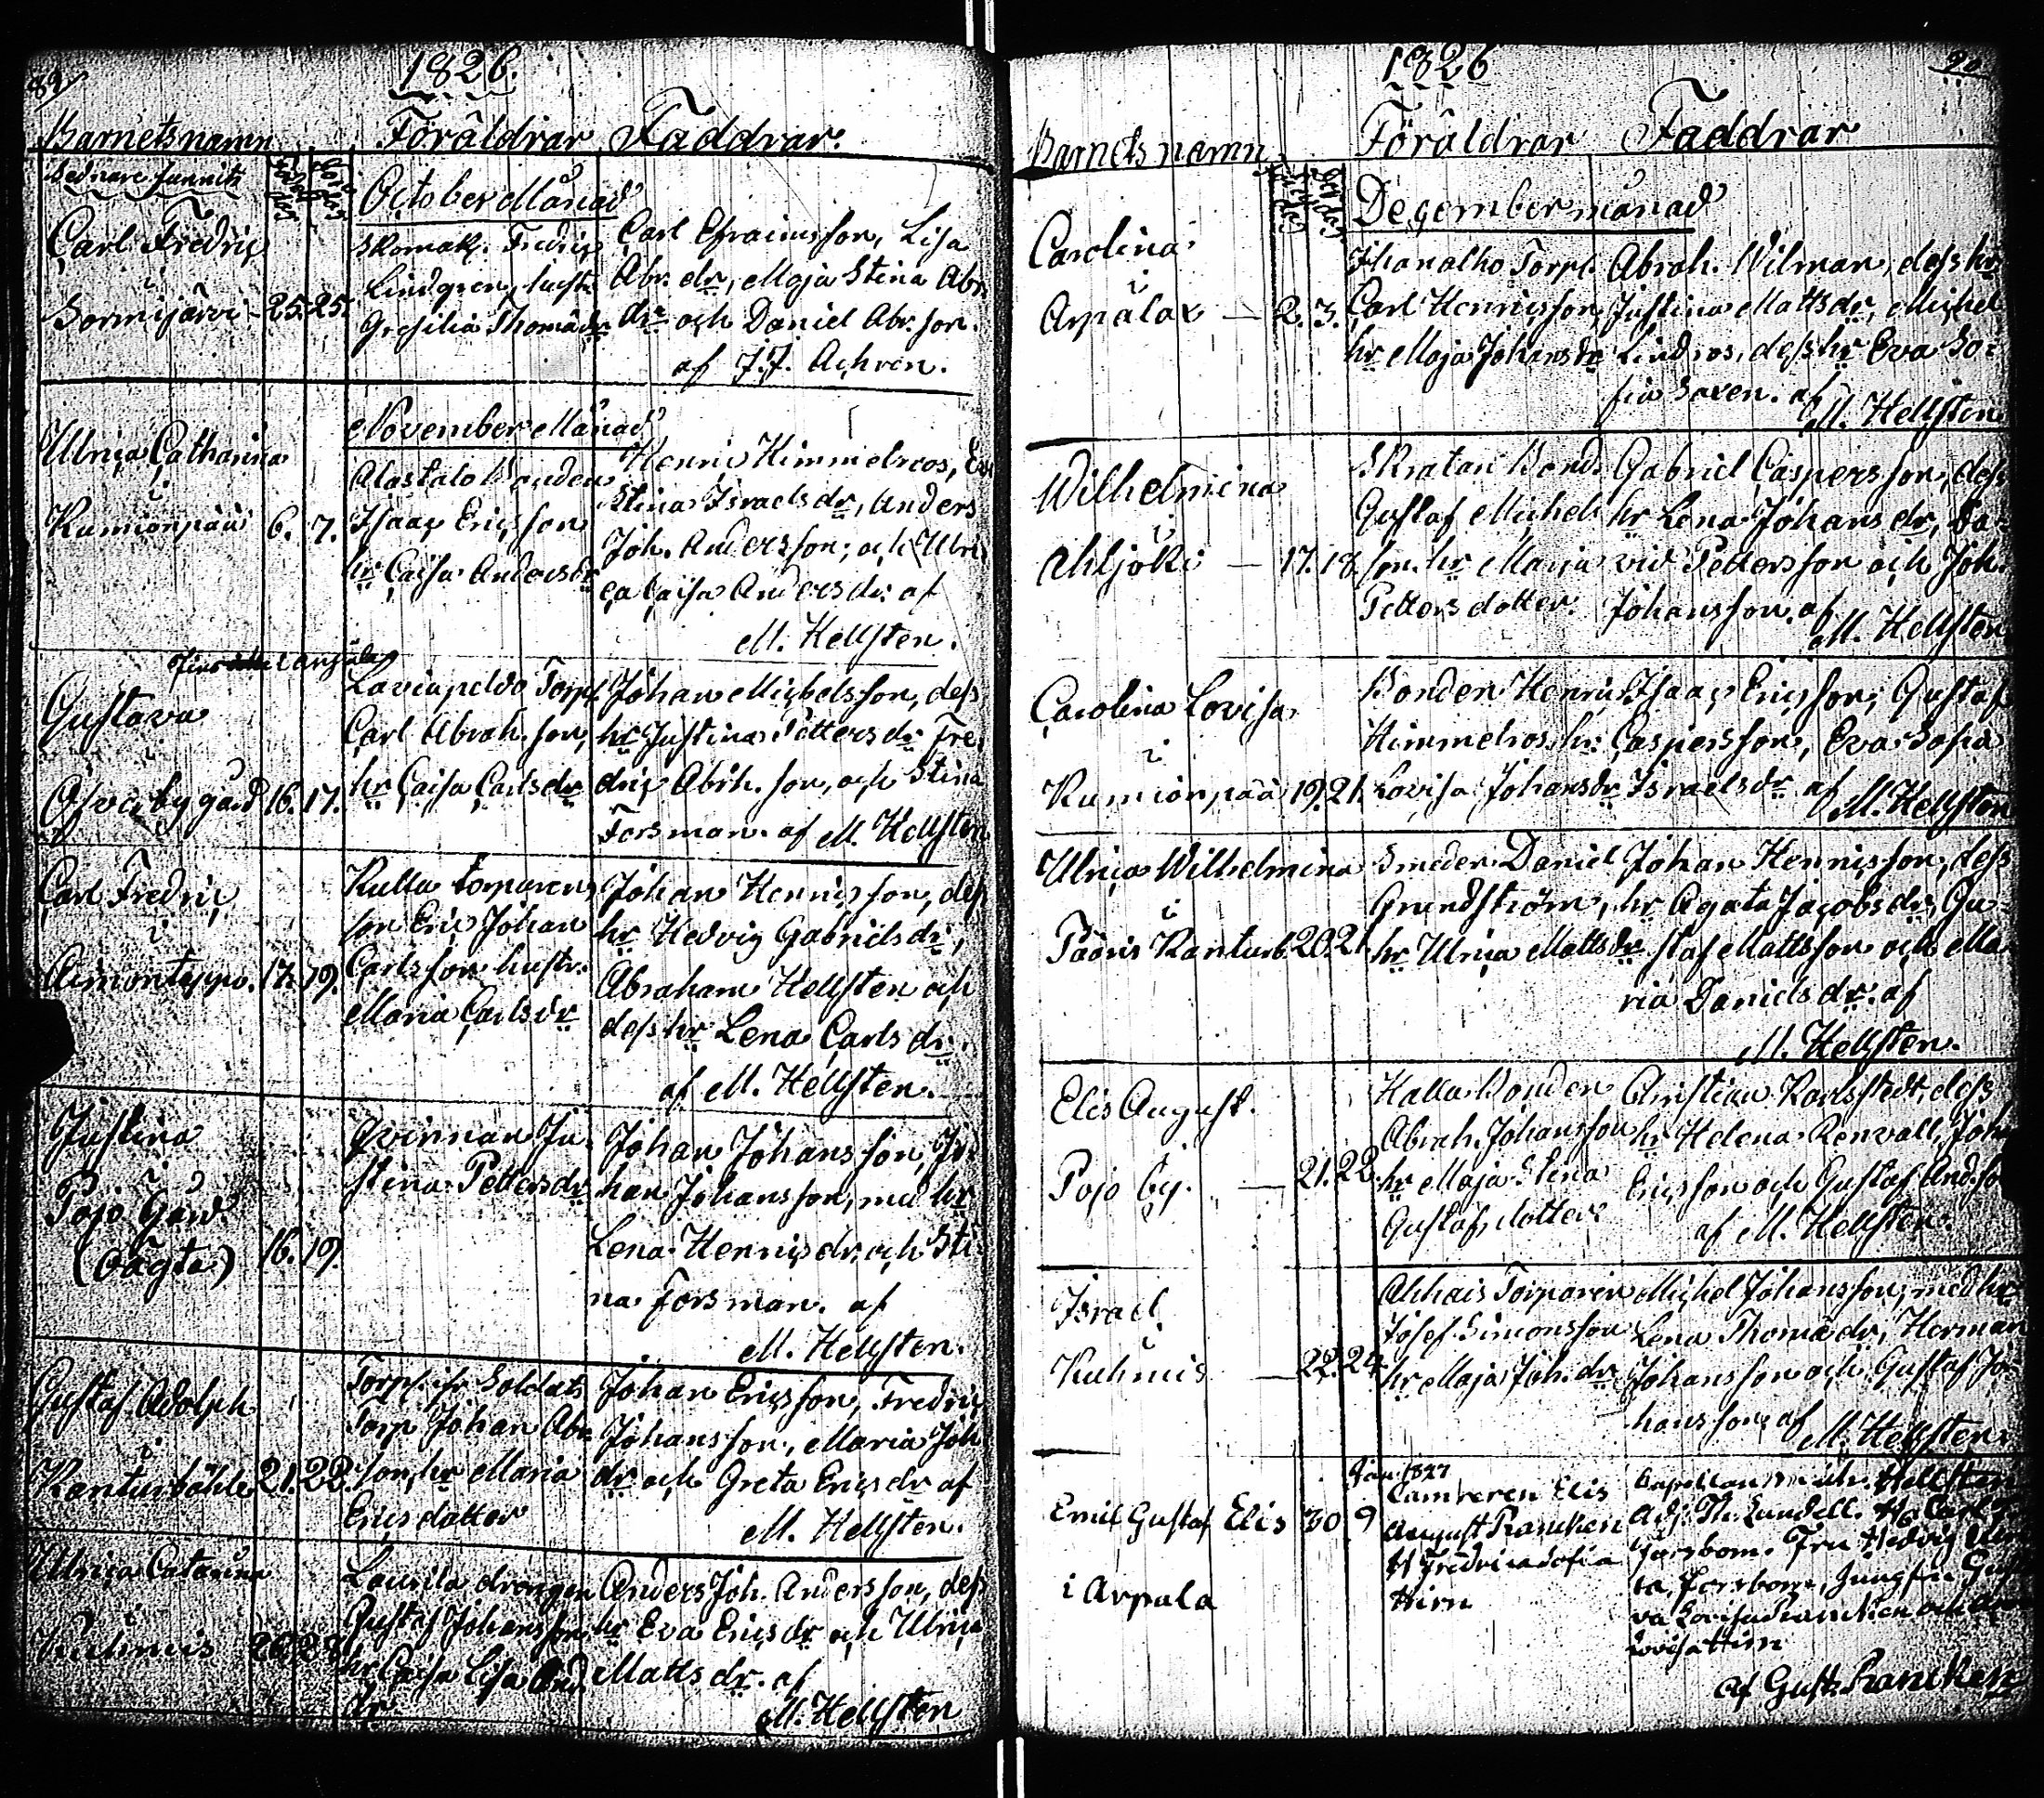 89
1826.
Barnets namn
Föräldrar
Faddrar.
Sednare funnits
October Månad
Carl Fredric
i
Sormijärvi 25. 25.
Skomak. Fredric
Lindgren, hustr.
Gresilia Thomädr
Carl Efraimsson, Lisa
Abr. dr, Maja Stina Abr.
dr och Daniel Abr. son.
af J. J. Achren.
November Månad
Ulrica Catharina
i
Kumionpää 6. 7.
Alastalo Bonden
Isaac Ericsson
hr Caisa Andersdr
Henric Himmelroos,
Stina Israelsdr, Anders
Joh. Andersson, och Ulri
ca Caisa Andersdr. af
M. Hellsten.
Gustava
i
by gård 16. 17.
Laviapeldo Torp.
Carl Abrah. son,
hr Caisa Carlsdr
Johan Michelsson, dess
hr Justina Pettersdr Fre
dric Abrh. son, och Stina
Forsman. af M. Hellsten
Carl Fredric
i
17. 19.
Kulla torparens
son Eric Johan
Carlsson hustr.
Maria Carlsdr
Johan Henricsson, dess
hr Hedvig Gabrielsdr,
Abraham Hellsten och
dess hr Lena Carlsdr.
af M. Hellsten.
Justina
i
Pojo Gård.
(oägta) 16. 19.
Qvinnan Ju
stina Pettersdr
Johan Johansson, Jo
han Johansson, med hr
Lena Henricsdr. och Sti
na Forsman. af
M. Hellsten.
Gustaf Adolph
i
Kanturböhle 21. 22.
Torp. ifr. Soldats
Torp Johan Abr.
son, hr Maria
Ericsdotter
Johan Ericsson, Fredric
Johansson, Maria Joh.
dr och Greta Ericsdr af
M. Hellsten.
Ulrica Catarina
i
Kuhmis
Laurila drängen
Gustaf Johansson
hr Caisa Lisa And.
dr.
Anders Joh. Andersson, dess
hr Eva Ericsdr och Ulrica
Mattsdr. af
M. Hellsten
1826
90
Barnets namn
Föräldrar
Faddrar
December månad
Carolina
i
Arpalax 2. 3.
Ihanalho Torp.
Carl Henricsson,
hr Maja Johansdr
Abrah. Wilman, dess hr
Justina Mattsdr, Michel
Lindros, dess hr Eva So
fia Saxen. af
M. Hellsten
Wilhelmina
i
Ahljoki 17. 18.
Skratari Bond.
Gustaf Michels
son. hr Maria
Petters dotter.
Gabriel Caspersson, dess
hr Lena Johansdr, Da
vid Pettersson och Joh.
Johansson. af
M. Hellsten
Carolina Lovisa
i
Kumionpää 19. 21.
Bonden Henric
Himmelros, hr.
Lovisa Johansdr
Isaac Ericsson, Gustaf
Caspersson, Eva Sofia
Israelsdr af
M. Hellsten
Ulrica Wilhelmina
i
Pääris Kanturb. 20. 21.
Smeden Daniel
Grundström,
hr Ulrica Mattsdr
Johan Henricsson, dess
hr Agata Jacobsdr, Gu
staf Mattsson och Ma
ria Danielsdr. af
M. Hellsten.
Elis August.
Pojo by. 21. 22.
Halla Bonden
Abrah. Johansson
hr Maja Stina
Gustafs dotter
Christian Karlstedt, dess
hr Helena Renvall, Joh.
Ericsson och Gustaf And. so
af M. Hellsten.
Israel
i
Kuhmis 22. 24.
Ahhais Torparen
Josef Simonsson
hr Maja Joh. dr
Michel Johansson, med hr
Lena Thomädr, Herman
Johansson och Gustaf Jo
hansson. af
M. Hellsten.
Jan. 1827
Emil Gustaf Elis 30 9
i Arpala
Camreren Elis
August Rancken
H Fredrica Sofia
Hirn
Capellan Mich. Hellsten
Adj. Th. Lundell. Hr Carl
Forsbom. Fru Hedvig Ulri
ca Forsbom, Jungfru Gus
va Lovisa Rancken och
Lovisa Hirn
af Gust. Rancken